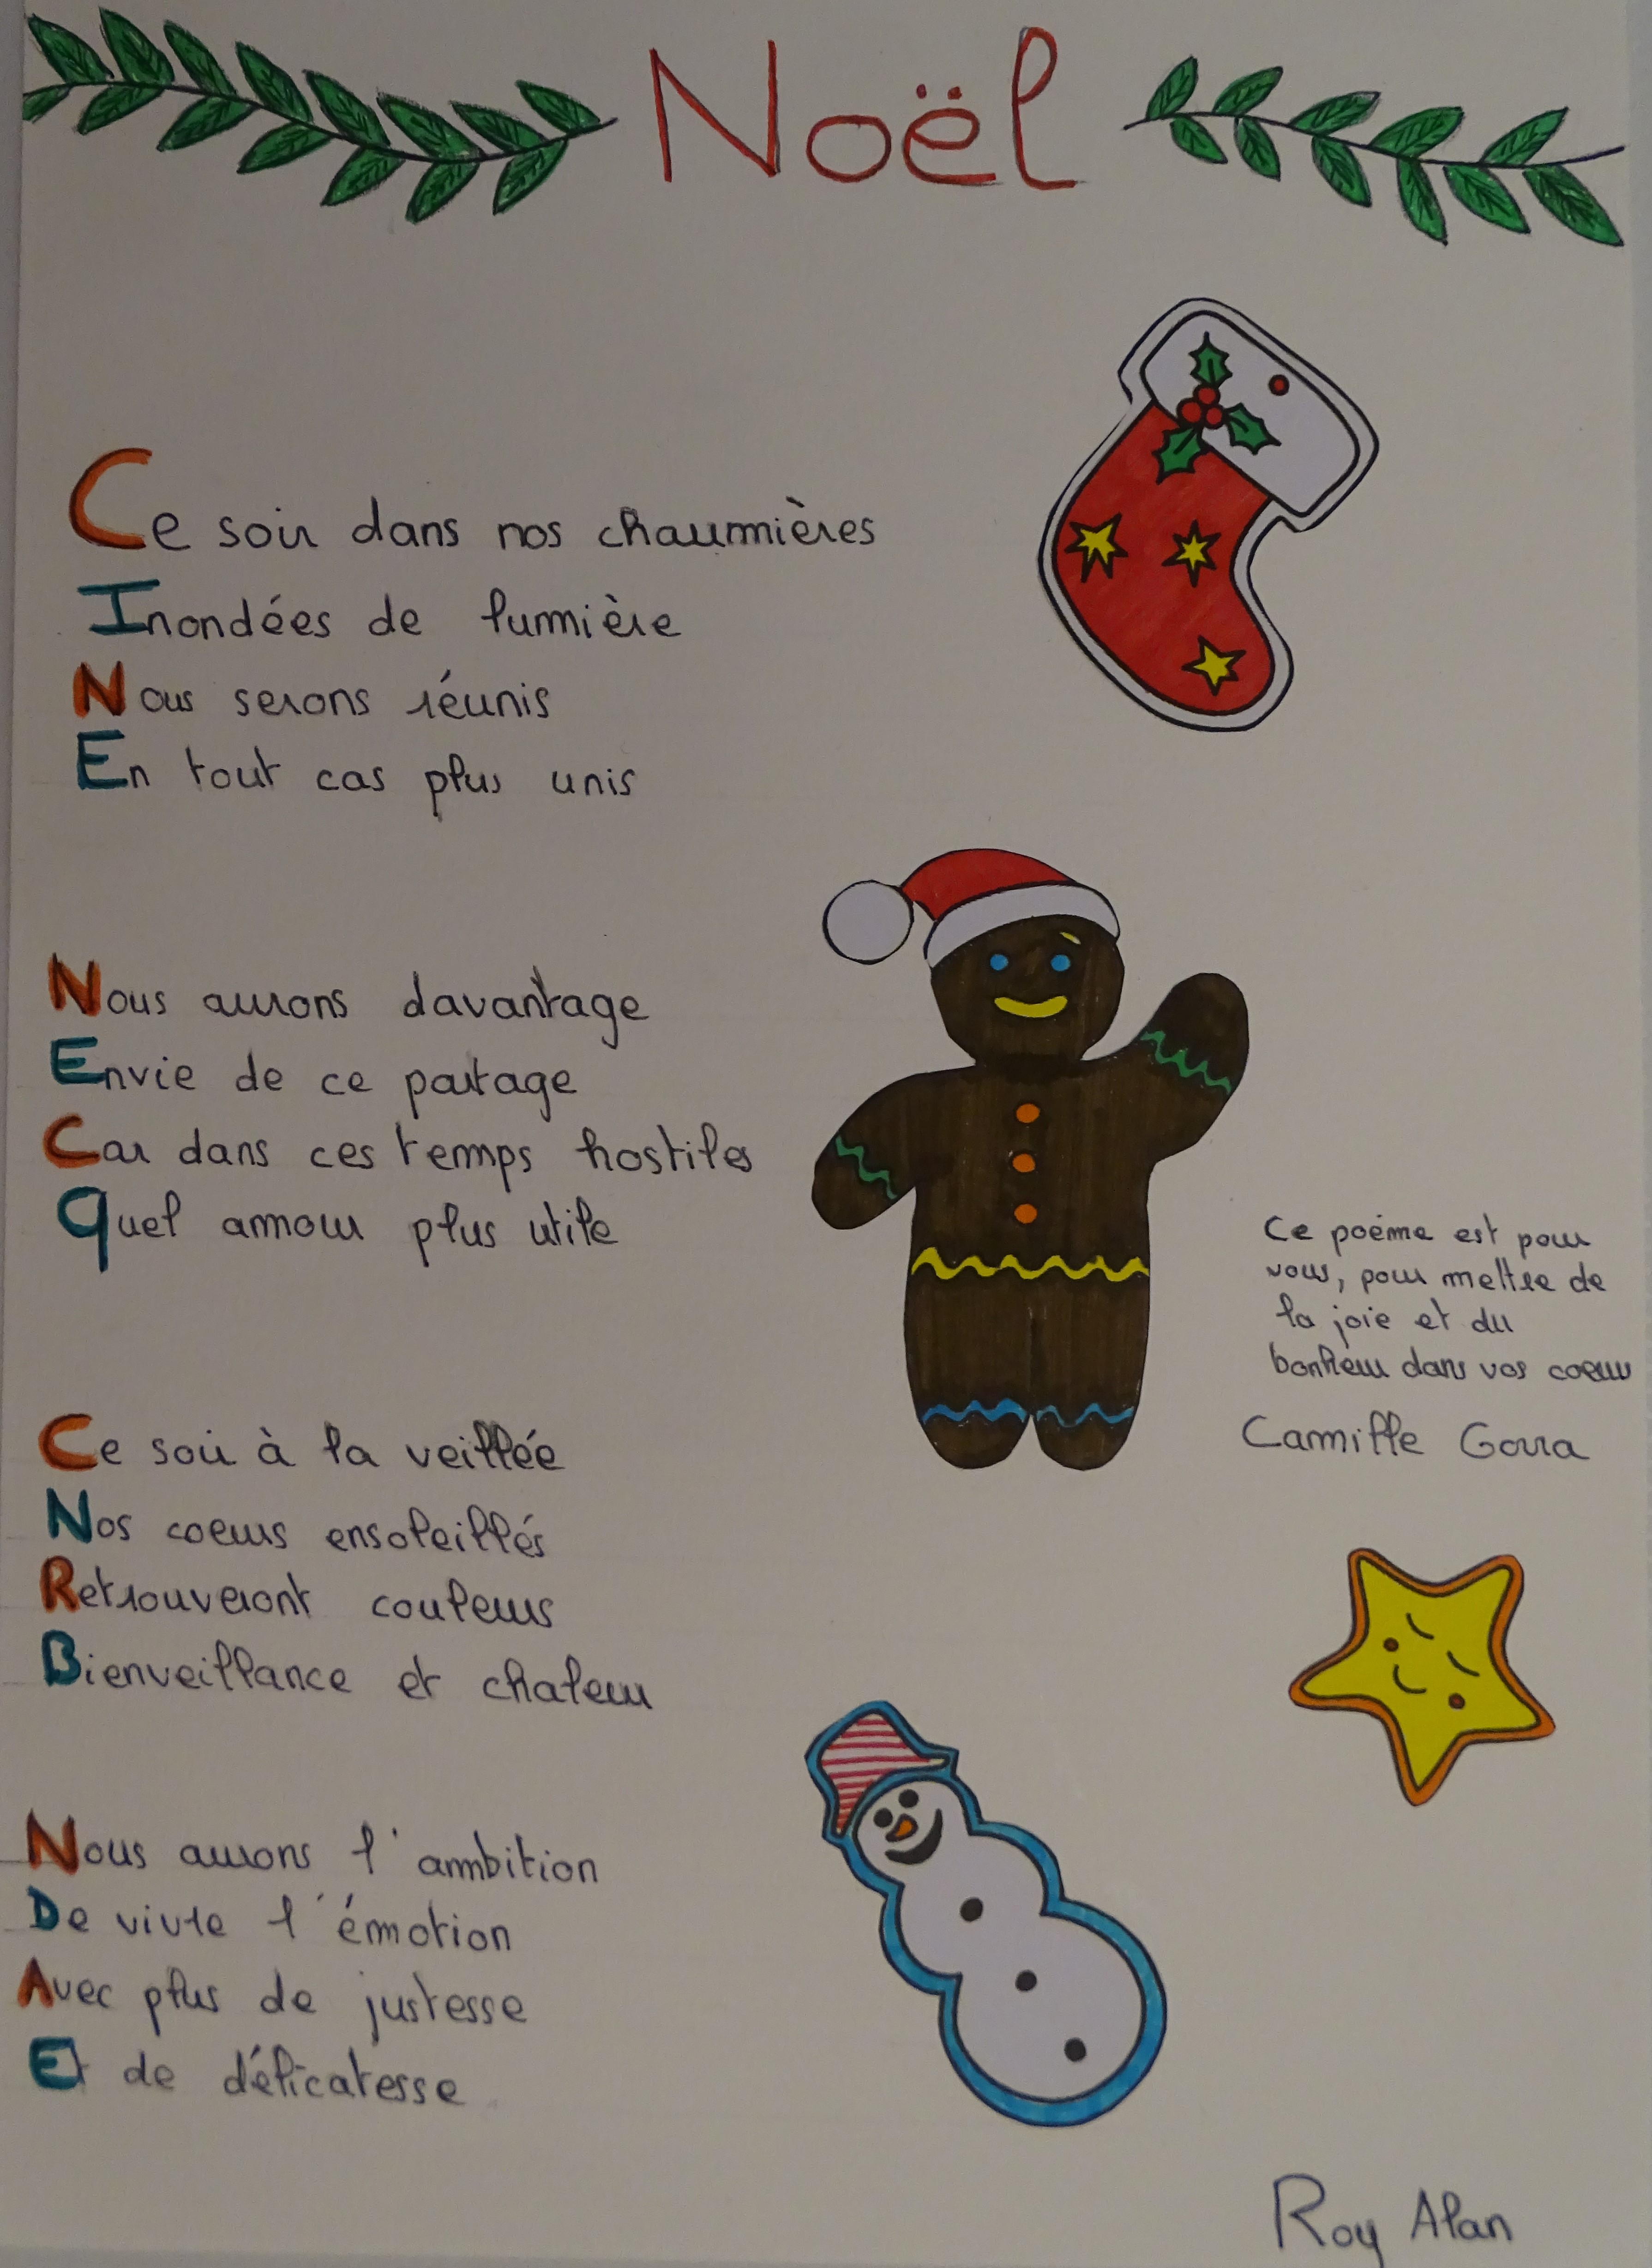 Noël
Ce soir dans nos chaumières
Inondées de lumière
Nous serons réunis
En tout cas plus unis
Nous aurons davantage
Envie de ce partage
Car dans ces temps hostiles
Quel amour plus utile
Ce poème est pour
vous, pour mettre de
la joie et du
bonheur dans vos coeurs
Camille Gorra
Ce soir à la veillée
Nos coeurs ensoleillés
Retrouveront couleurs
Bienveillance et chaleur
Nous aurons l'ambition
De vivre l'émotion
Avec plus de justesse
Et de délicatesse
Roy Alan